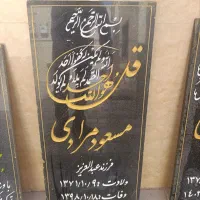 بسم الله الرحمن الرحیم
قل هو الله احد
الله الصمد لم یلد و لم یولد
و لم یکن له کفوا احد
مسعود مرادی
فرزند عبدالعزیز
ولادت: ۱۳۷۱/۰۱/۰۹
وفات: ۱۳۹۸/۰۱/۱۸